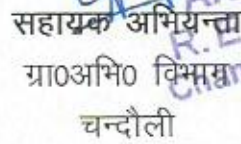 सहायक अभियन्ता
ग्रा0अभि0 विभाग
चन्दौली